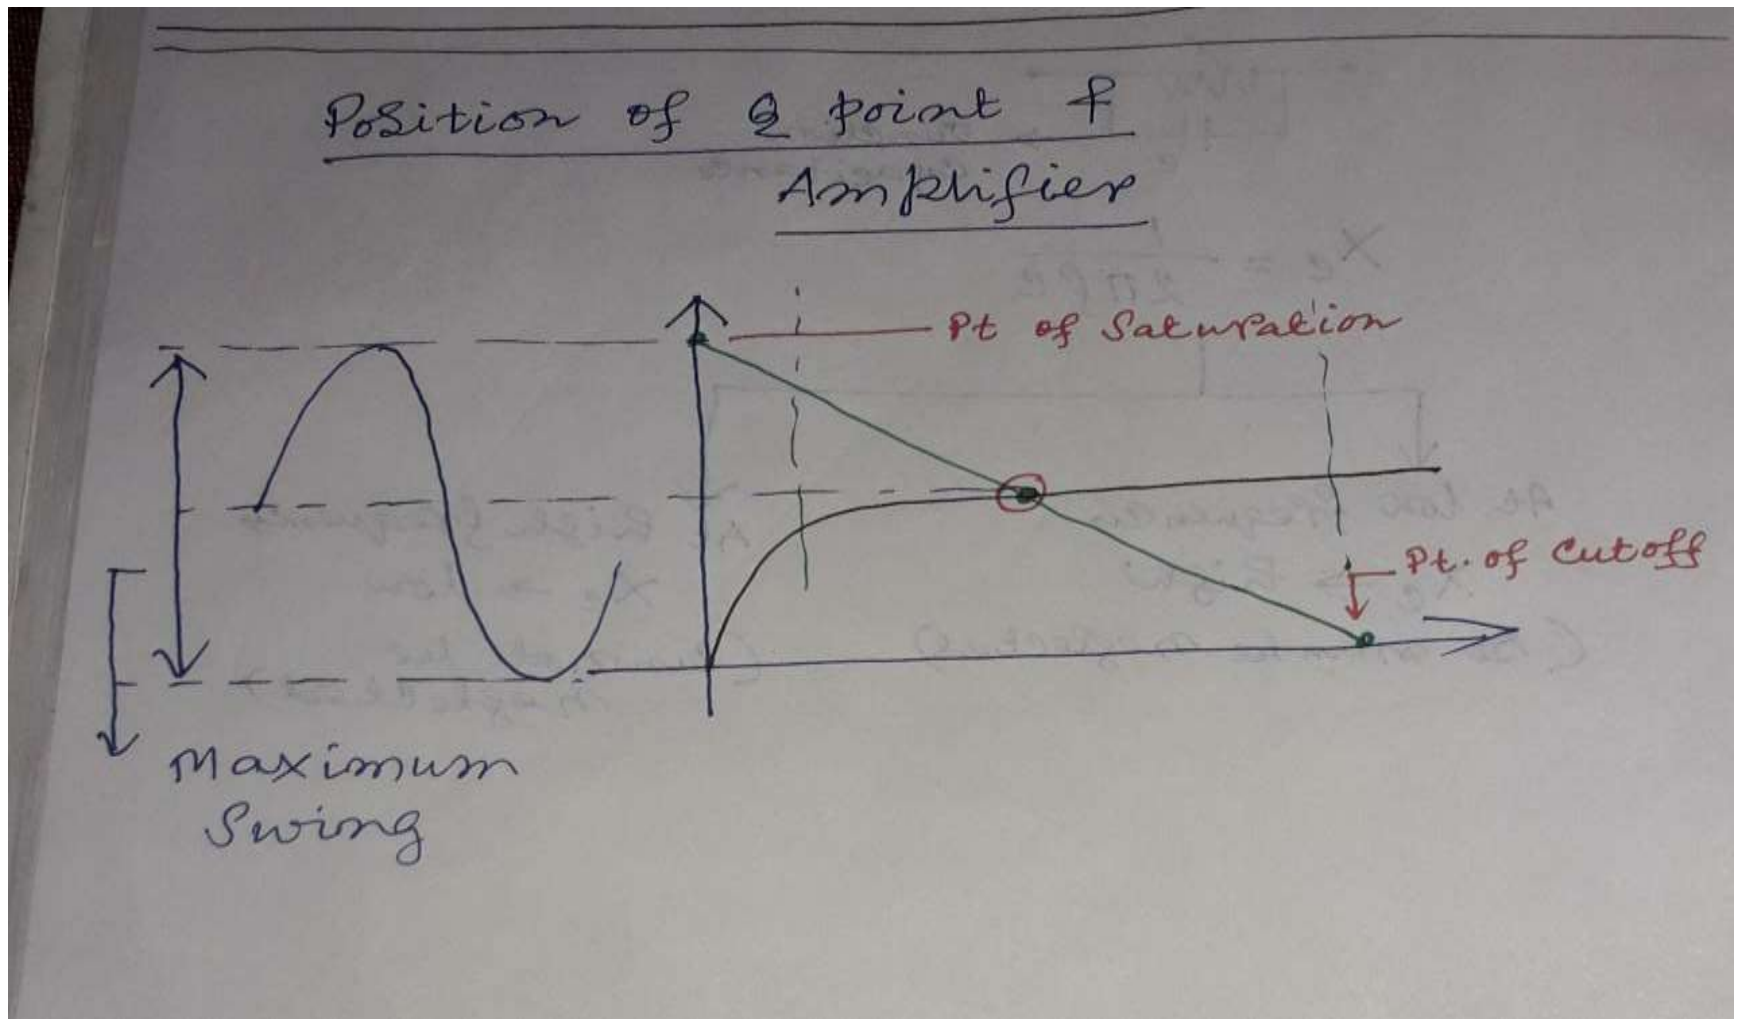 Position of Q point f
Amplifier
Pt of Saturation
Pt. of Cutoff
Maximum
Swing